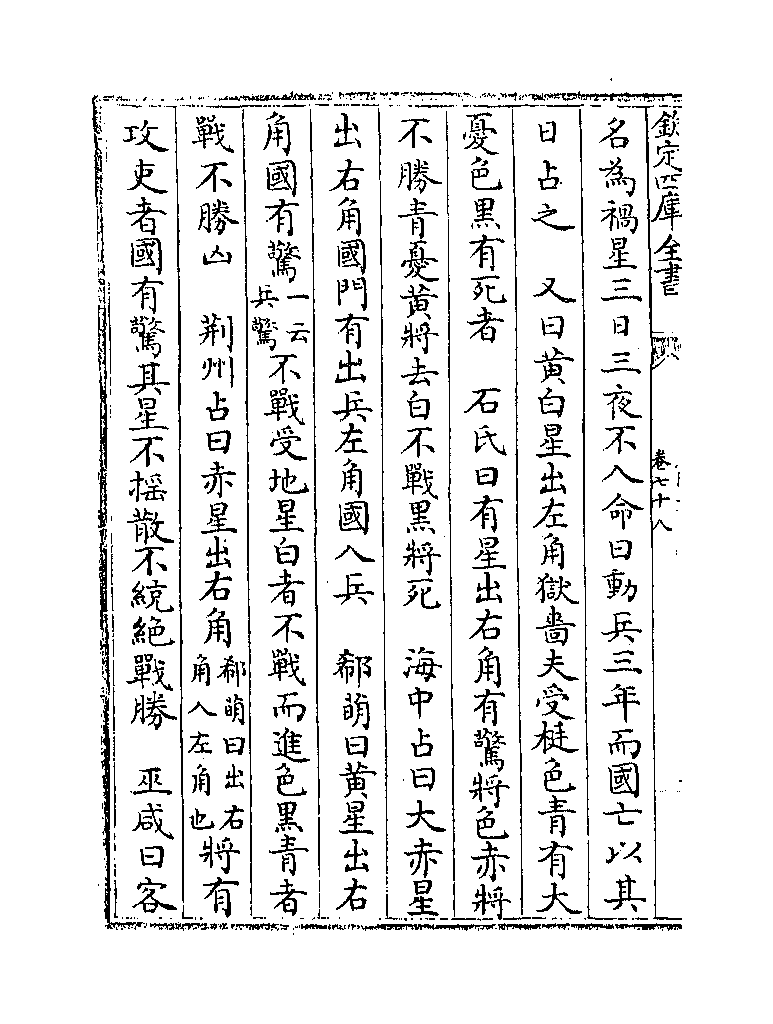 欽定四庫全書
卷七十八
名為禍星三日三夜不入命曰動兵三年而國亡以其
日占之　又曰黄白星出左角獄嗇夫受梃色青有大
憂色黒有死者　石氏曰有星出右角有驚將色赤將
不勝青憂黄將去白不戰黒將死　海中占曰大赤星
出右角國門有出兵左角國入兵　郗萌曰黄星出右
角國有驚一云兵驚不戰受地星白者不戰而進色黒青者
戰不勝凶　荆州占曰赤星出右角郗萌曰出右角入左角也將有
攻吏者國有驚其星不揺散不繞絶戰勝　巫咸曰客